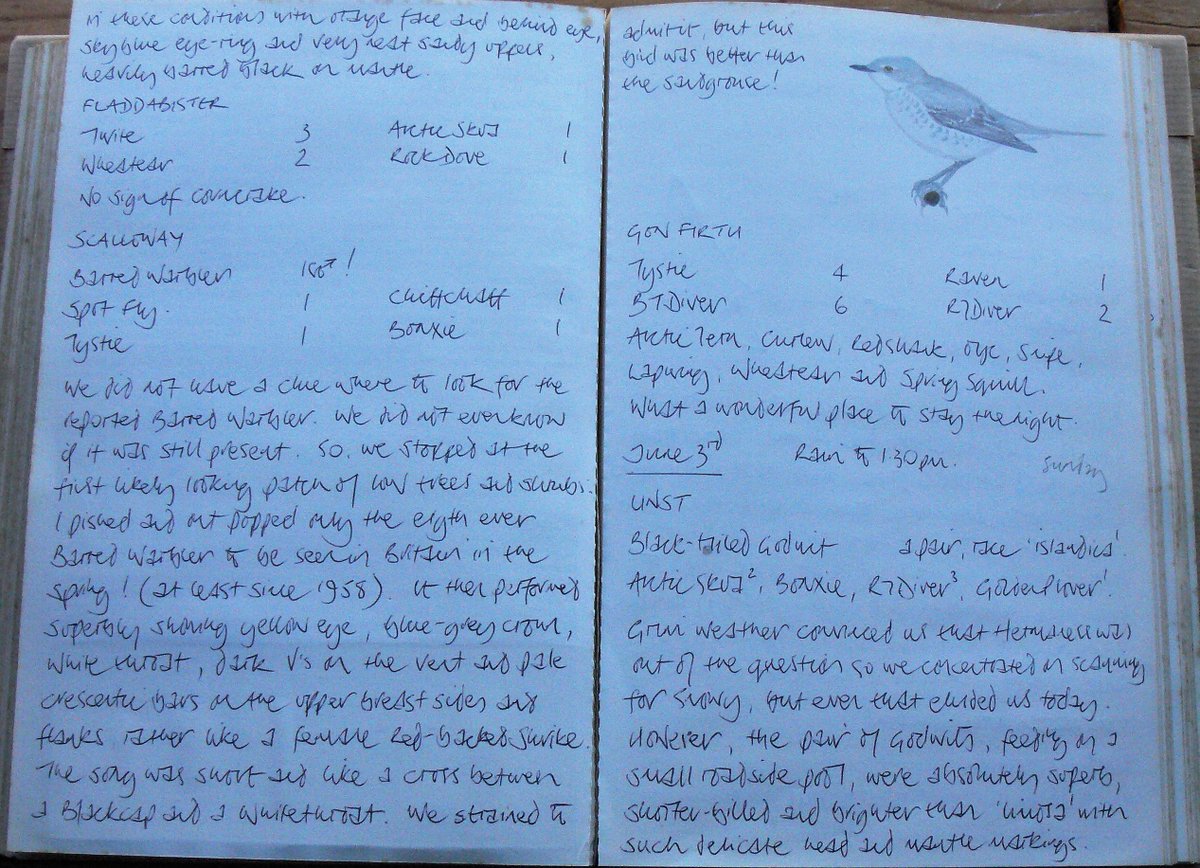 in these conditions with orange face and behind eye,
sky blue eye-ring and very neat sandy uppers,
heavily barred black on mantle.
FLADDABISTER
Twite 3 Arctic Skua 1
Wheatear 2 Rock Dove 1
No sign of corncrake.
SCALLOWAY
Barred Warbler 1 !
Spot Fly. 1 Chiffchaff 1
Tystie 1 Bonxie 1
We did not have a clue where to look for the
reported Barred Warbler. We did not even know
if it was still present. So, we stopped at the
first likely looking patch of low trees and shrubs.
I pished and out popped only the eigth ever
Barred Warbler to be seen in Britain in the
spring! (at least since 1958). It then performed
superbly showing yellow eye, blue-grey crown,
white throat, dark V's on the vent and pale
crescentic bars on the upper breast sides and
flanks, rather like a female Red-backed Shrike.
The song was short and like a cross between
a Blackcap and a Whitethroat. We strained to
admit it, but this
bird was better than
the sandgrouse!
GON FIRTH
Tystie 4 Raven 1
BTDiver 6 RTDiver 2
Arctic Tern, Curlew, Redshank, Oyc, Snipe,
Lapwing, Wheatear and Spring Squill.
What a wonderful place to stay the night.
June 3rd Rain to 1.30pm. Sunday
UNST
Black-tailed Godwit a pair, race 'islandica'.
Arctic Skua², Bonxie, RTDiver³, Golden Plover¹
Grim weather convinced us that Hermaness was
out of the question so we concentrated on scanning
for Snowy, but even that eluded us today.
However, the pair of Godwits, feeding on a
small roadside pool, were absolutely superb,
shorter-billed and brighter than 'limosa' with
such delicate head and mantle markings.